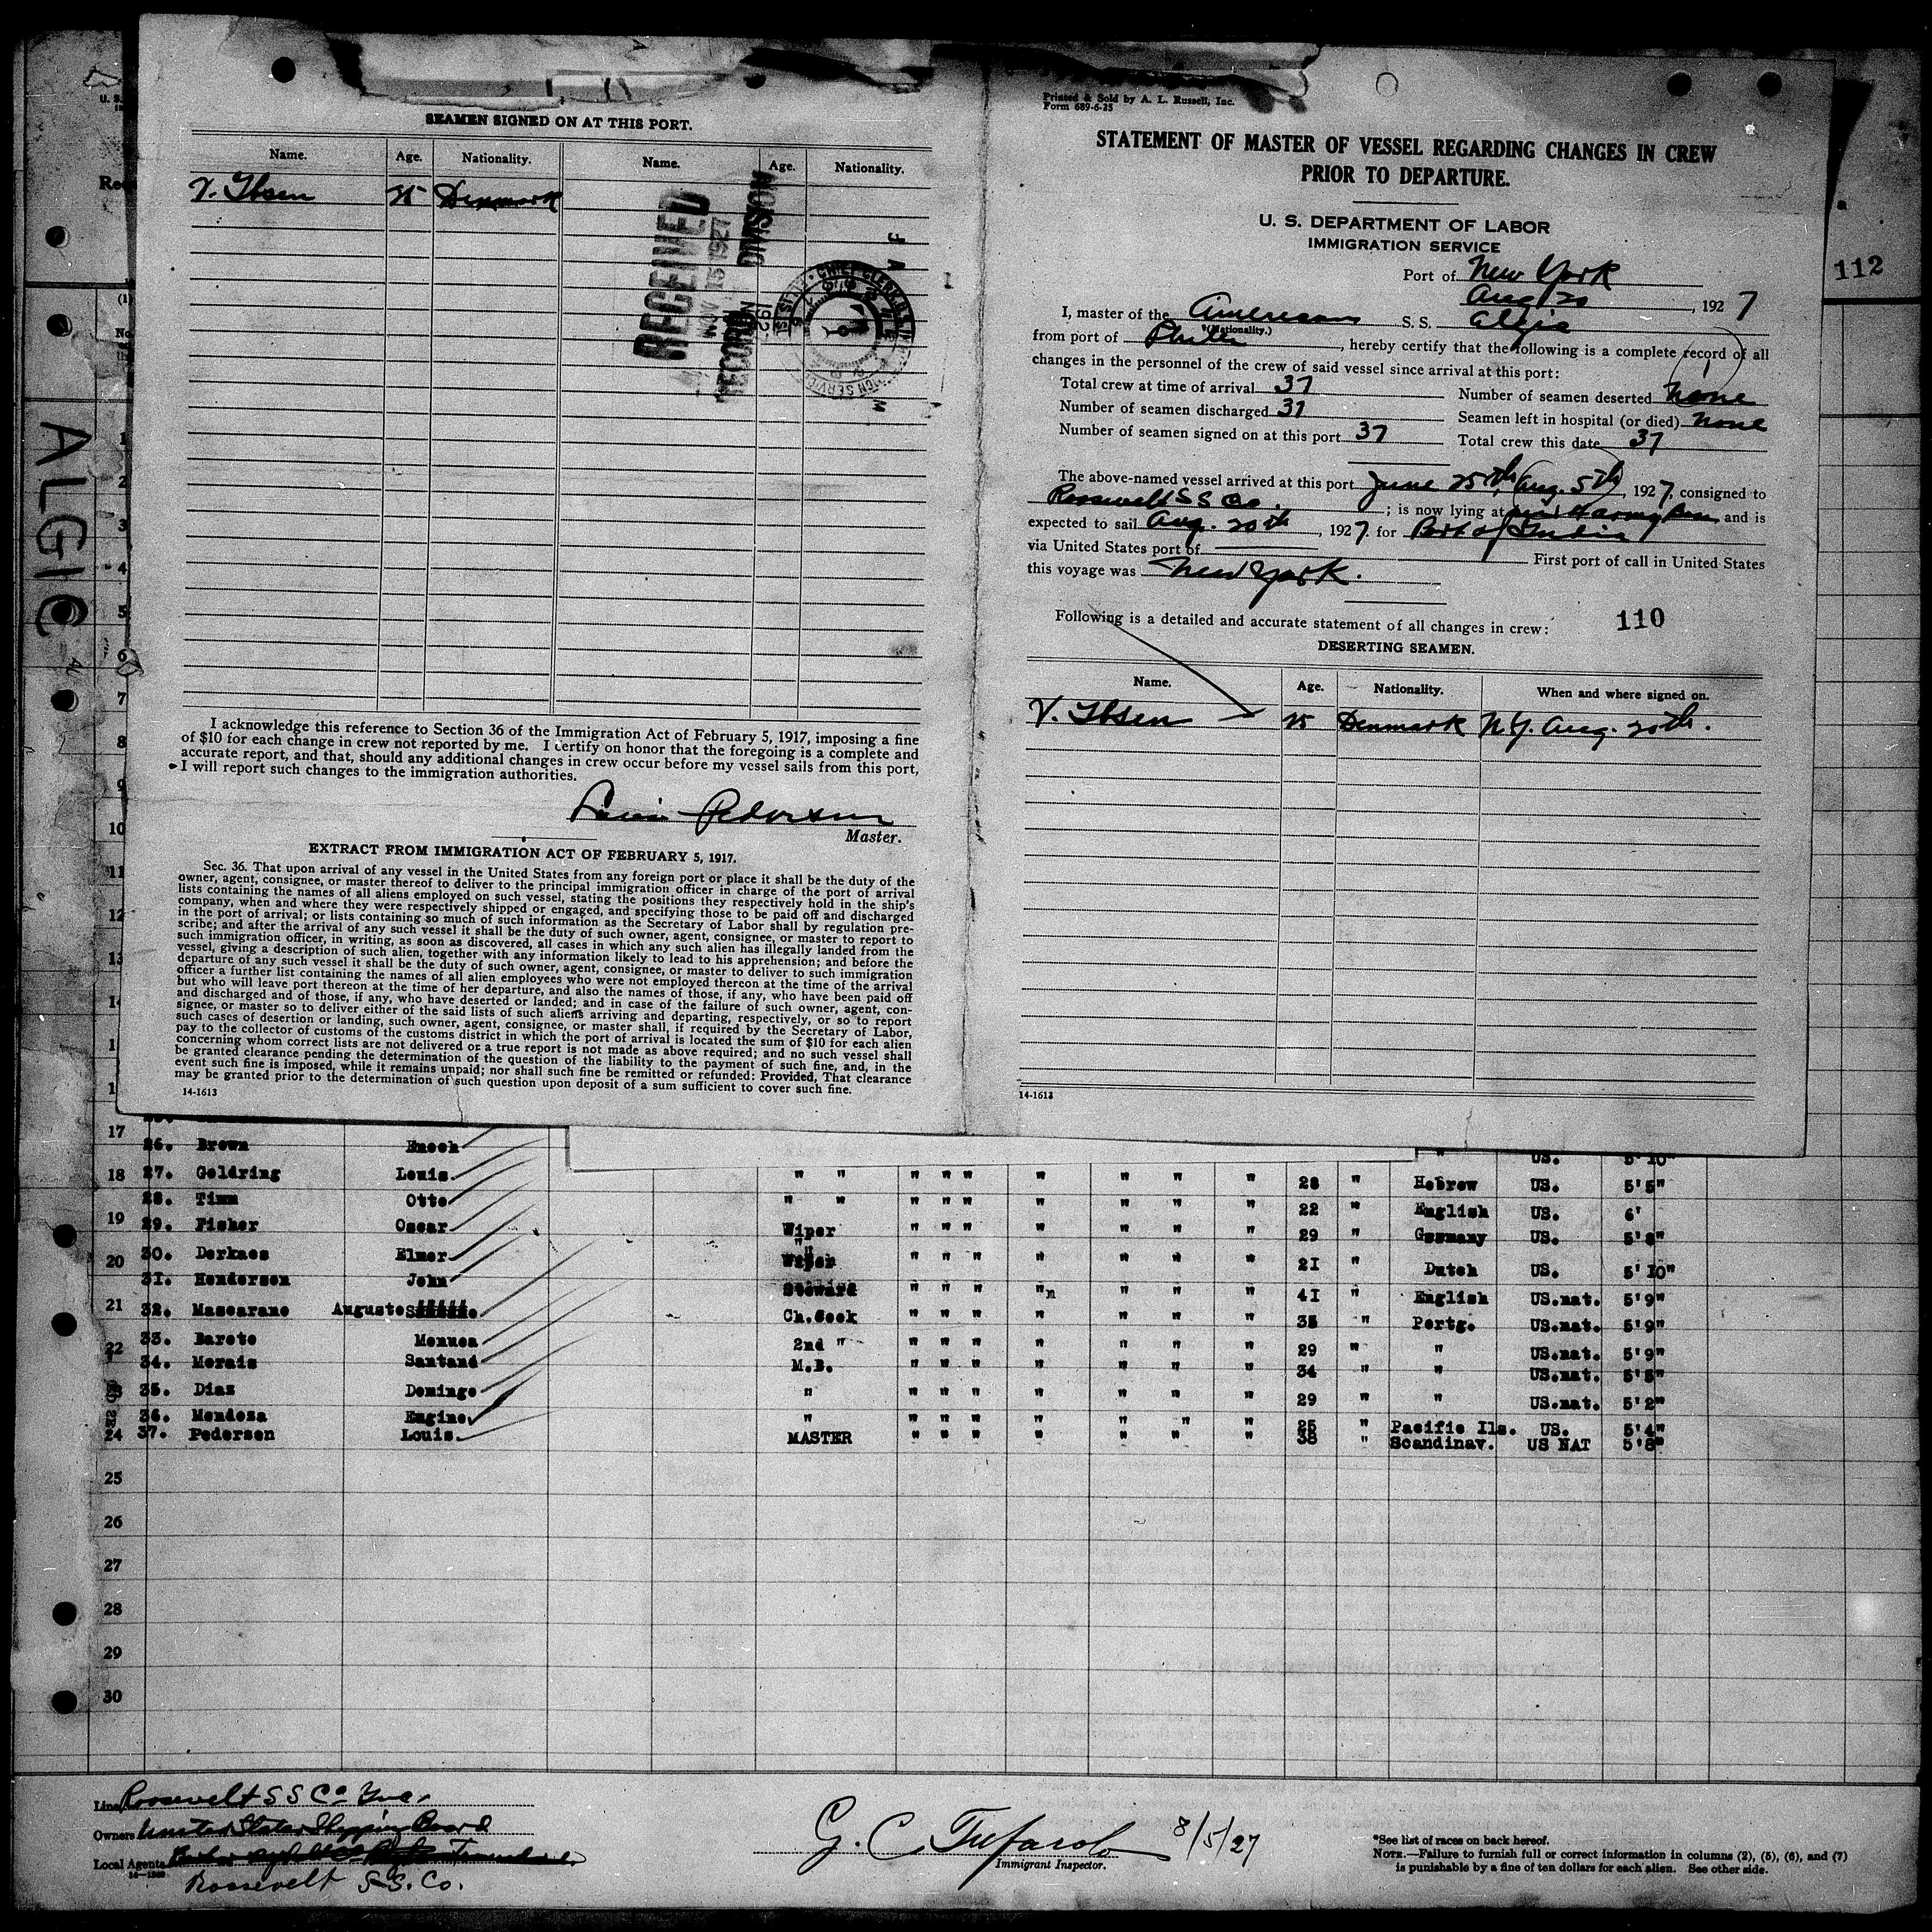 SEAMEN SIGNED ON AT THIS PORT.
Name. Age. Nationality. Name. Age. Nationality.
V. Ibsen 25 Denmark
RECEIVED
NOV 15 1927
RECORD DIVISION
I acknowledge this reference to Section 36 of the Immigration Act of February 5, 1917, imposing a fine
of $10 for each change in crew not reported by me. I certify on honor that the foregoing is a complete and
accurate report, and that, should any additional changes in crew occur before my vessel sails from this port,
I will report such changes to the immigration authorities.
Louis Pedersen
Master.
EXTRACT FROM IMMIGRATION ACT OF FEBRUARY 5, 1917.
Sec. 36. That upon arrival of any vessel in the United States from any foreign port or place it shall be the duty of the
owner, agent, consignee, or master thereof to deliver to the principal immigration officer in charge of the port of arrival
lists containing the names of all aliens employed on such vessel, stating the positions they respectively hold in the ship's
company, when and where they were respectively shipped or engaged, and specifying those to be paid off and discharged
in the port of arrival; or lists containing so much of such information as the Secretary of Labor shall by regulation pre-
scribe; and after the arrival of any such vessel it shall be the duty of such owner, agent, consignee, or master to report to
such immigration officer, in writing, as soon as discovered, all cases in which any such alien has illegally landed from the
vessel, giving a description of such alien, together with any information likely to lead to his apprehension; and before the
departure of any such vessel it shall be the duty of such owner, agent, consignee, or master to deliver to such immigration
officer a further list containing the names of all alien employees who were not employed thereon at the time of the arrival
but who will leave port thereon at the time of her departure, and also the names of those, if any, who have been paid off
and discharged and of those, if any, who have deserted or landed; and in case of the failure of such owner, agent, con-
signee, or master so to deliver either of the said lists of such aliens arriving and departing, respectively, or so to report
such cases of desertion or landing, such owner, agent, consignee, or master shall, if required by the Secretary of Labor,
pay to the collector of customs of the customs district in which the port of arrival is located the sum of $10 for each alien
concerning whom correct lists are not delivered or a true report is not made as above required; and no such vessel shall
be granted clearance pending the determination of the question of the liability to the payment of such fine, and, in the
event such fine is imposed, while it remains unpaid; nor shall such fine be remitted or refunded: Provided, That clearance
may be granted prior to the determination of such question upon deposit of a sum sufficient to cover such fine.
14-1613
Printed & Sold by A. L. Russell, Inc.
Form 689-6-25
STATEMENT OF MASTER OF VESSEL REGARDING CHANGES IN CREW
PRIOR TO DEPARTURE.
U. S. DEPARTMENT OF LABOR
IMMIGRATION SERVICE
Port of New York
Aug 20, 1927
I, master of the American S. S. Algic
(Nationality.)
from port of Phila, hereby certify that the following is a complete record of all
changes in the personnel of the crew of said vessel since arrival at this port:
Total crew at time of arrival 37 Number of seamen deserted none
Number of seamen discharged 37 Seamen left in hospital (or died) none
Number of seamen signed on at this port 37 Total crew this date 37
The above-named vessel arrived at this port June 25th, Aug. 5th, 1927, consigned to
Roosevelt S S Co.; is now lying at and is
expected to sail Aug. 20th, 1927. for Port of India
via United States port of First port of call in United States
this voyage was New York.
Following is a detailed and accurate statement of all changes in crew: 110
DESERTING SEAMEN.
Name. Age. Nationality. When and where signed on.
V. Ibsen 25 Denmark N.Y. Aug. 20th.
14-1613
112
ALGIC
1
2
3
4
5
6
7
8
9
10
11
12
13
17 26. Brown Enoch " US. 5'10"
18 27. Goldring Louis " " " " " " " " " 28 " Hebrew US. 5'5"
28. Timm Otto " " " " " " " " " 22 " English US. 6'
19 29. Fisher Oscar Wiper " " " " " " " 29 " Germany US. 5'8"
20 30. Derkaes Elmer " " " " " " " " 21 " Dutch US. 5'10"
31. Henderson John Steward " " " " " " " 41 " English US.nat. 5'9"
21 32. Mascarane Auguste Ch.Cook " " " " " " " 35 " Portg. US.nat. 5'9"
22 33. Barete Menuea 2nd " " " " " " " " 29 " " US.nat. 5'9"
34. Morais Santana M.B. " " " " " " " 34 " " US.nat. 5'5"
23 35. Diaz Domingo " " " " " " " " 29 " " US.nat. 5'2"
36. Mendoza Engine " " " " " " " " 25 " Pacific Ils. US. 5'4"
24 37. Pedersen Louis MASTER " " " " " " " 38 " Scandinav. US NAT 5'8"
25
26
27
28
29
30
Line Roosevelt S S Co Inc.
Owners United States Shipping Board
Local Agents
14-1240
Roosevelt S.S. Co.
G. C. Tufarolo 8/5/27
Immigrant Inspector.
*See list of races on back hereof.
NOTE.—Failure to furnish full or correct information in columns (2), (5), (6), and (7)
is punishable by a fine of ten dollars for each alien. See other side.